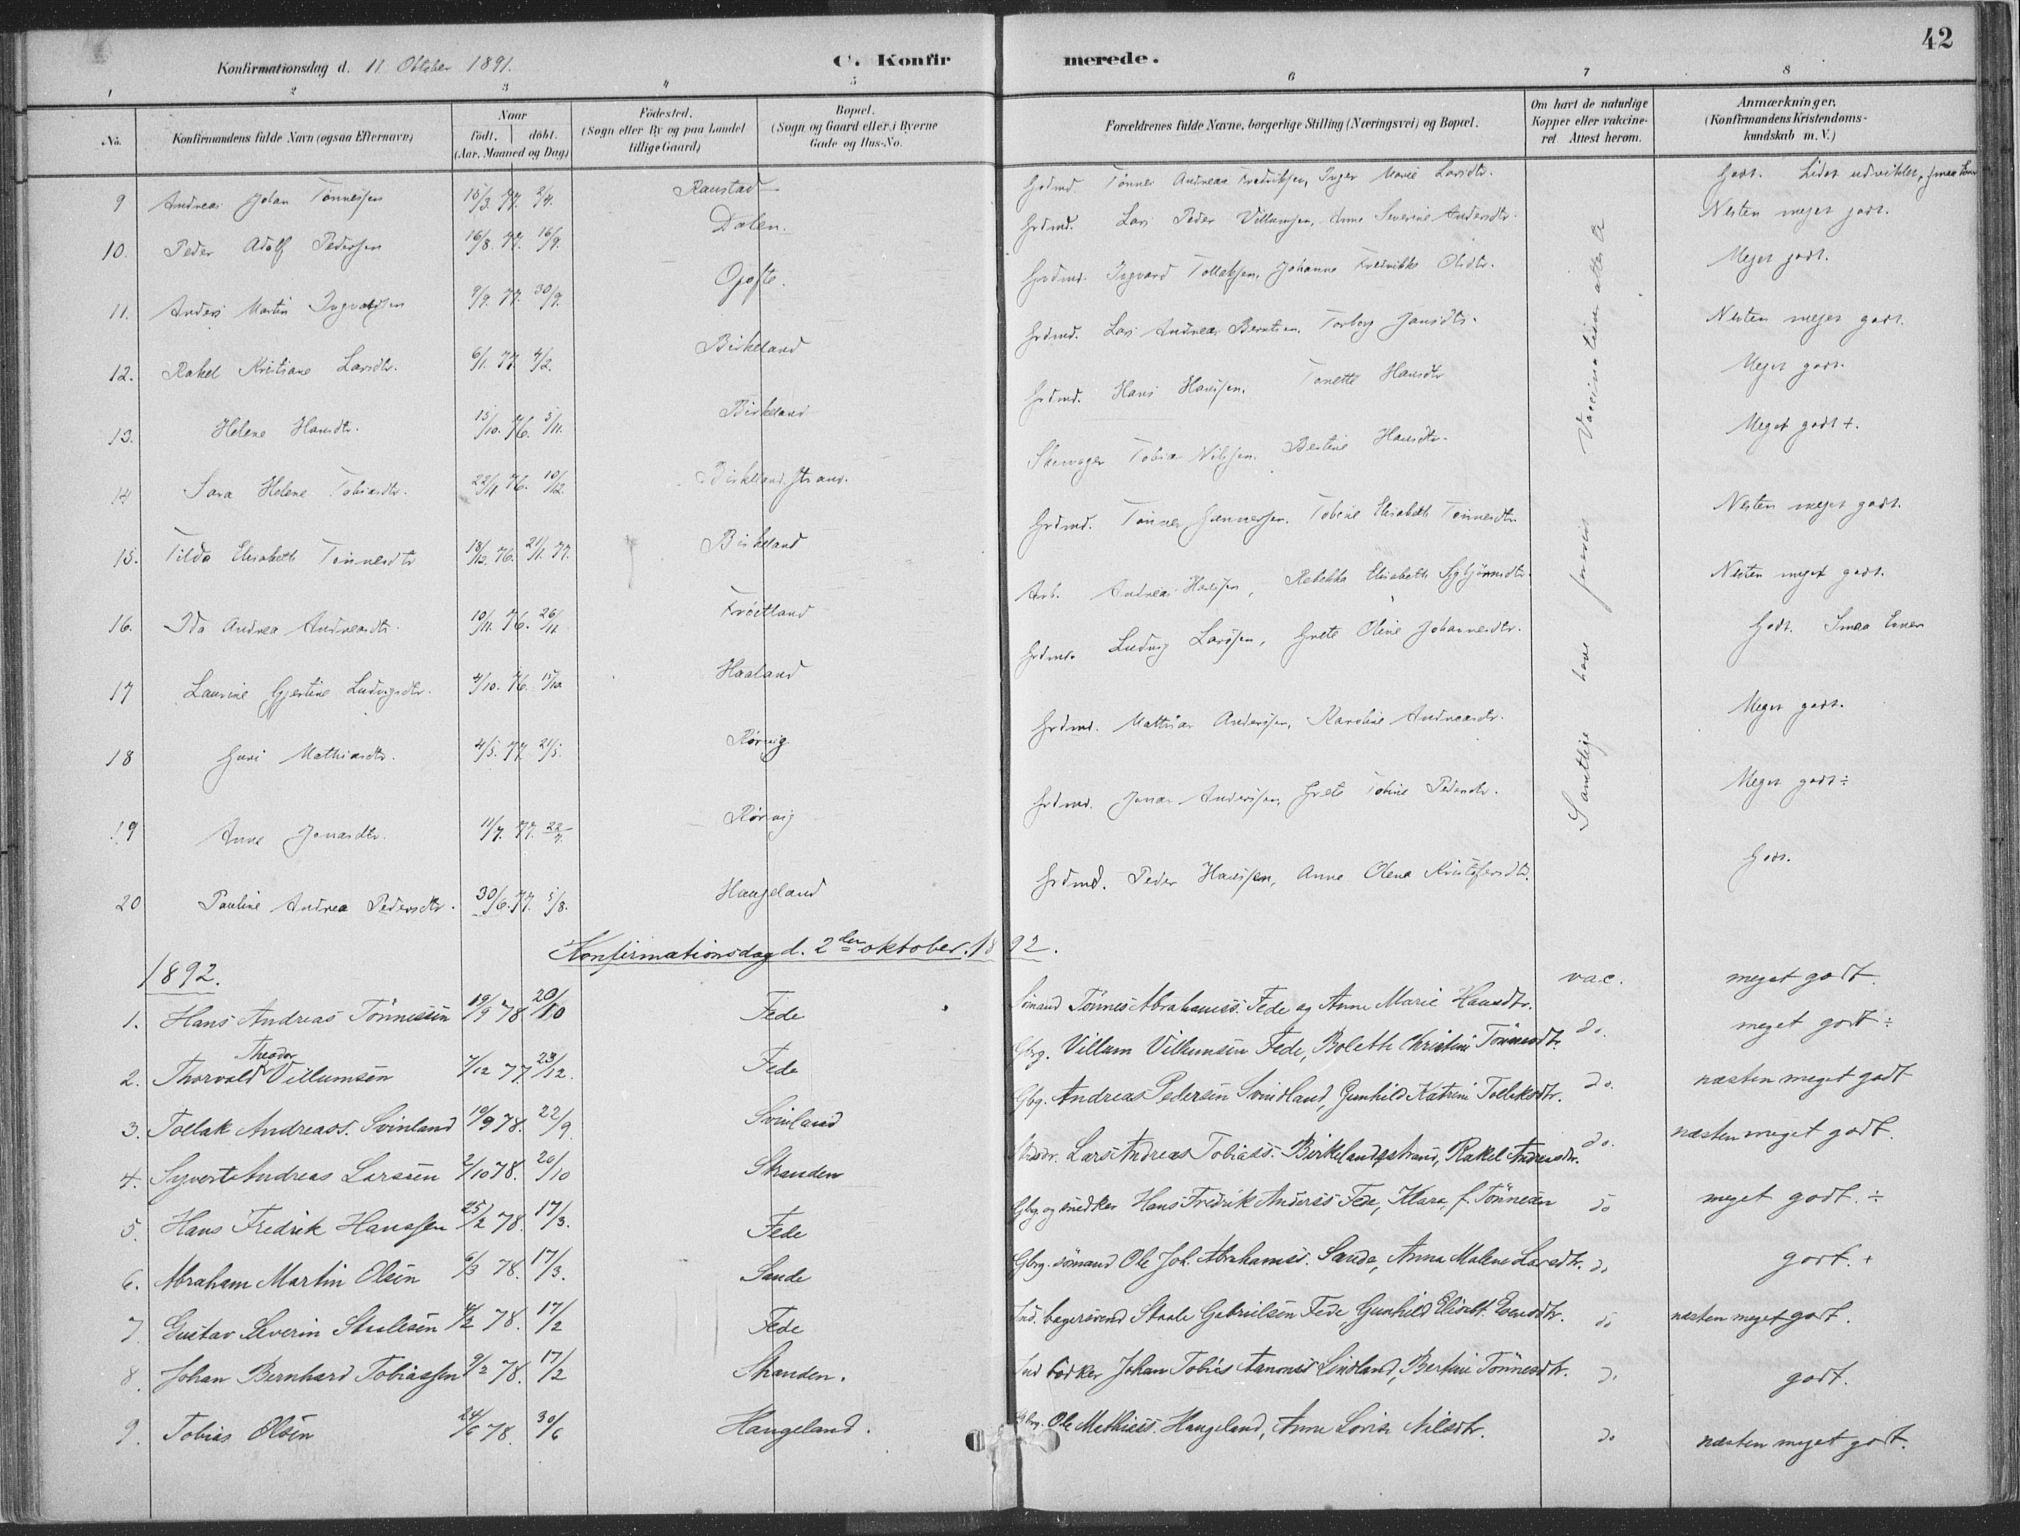 42
Konfirmationsdag d. 11 Oktober 1891.
C. Konfirmerede.
1 2 3 4 5 6 7 8
No.
Konfirmandens fulde Navn (ogsaa Efternavn)
Naar
født. døbt.
(Aar. Maaned og Dag)
Fødested.
(Sogn eller By og paa Landet
tillige Gaard)
Bopæl.
(Sogn og Gaard eller i Byerne
Gade og Hus-No.
Forældrenes fulde Navne, borgerlige Stilling (Næringsvei) og Bopæl.
Om havt de naturlige
Kopper eller vakcine-
ret Attest herom.
Anmærkninger.
(Konfirmandens Kristendoms-
kundskab m. V.)
9 Andreas Johan Tønnessen 15/3. 77. 2/4. Raustad Grdmd. Tønnes Andreas Fredriksen, Inger Marie Larsdtr. Godt. Lidet udviklet,
10. Peder Adolf Pedersen 16/8. 77. 16/9. Dalen. Grdmd. Lars Peder Villumsen, Anne Severine Andersdtr. Nesten meget godt.
11. Anders Martin Ingvaldsen 9/9. 77. 30/9. Opofte. Grdmd. Ingvard Tollaksen, Johanne Fredrikke Olsdtr. Meget godt.
12. Rakel Kristiane Larsdtr. 6/1. 77. 4/2. Birkeland Grdmd. Lars Andreas Berntsen, Torborg Jansdtr. Nesten meget godt.
13. Helene Hansdtr. 15/10. 76. 5/11. Birkeland Grdmd. Hans Hansen, Tonette Hansdtr Meget godt.
14 Sara Helene Tobiasdtr. 22/11 76. 10/12. Birkelandstrand. Tobias Nilsen, Bertine Hansdtr. Meget godt +.
15. Tilda Elisabeth Tønnesdtr 18/12. 76. 21/1. 77. Birkeland Grdmd. Tønnes Gunnersen, Tobine Elisabeth Tønnesdtr. Nesten meget godt.
16. Ida Andrea Andreasdtr. 10/11. 76. 26/11. Frøitland Arb. Andreas Hansen, Rebekka Elisabeth Sigbjørnsdtr. Nesten meget godt.
17 Laurine Gjertine Ludvigsdtr. 4/10. 76. 15/10 Haaland Grdmd. Ludvig Larsen, Grete Oline Johannesdtr. Godt. Smaa Evner
18 Guri Mathiasdtr. 4/5. 77. 21/5. Rørvig Grdmd. Mathias Andersen, Karoline Andreasdtr. Meget godt.
19 Anne Jonasdtr. 11/7. 77. 22/7. Rørvig Grdmd. Jonas Andersen, Grete Tobine Pedersdtr. Meget godt ÷
20 Pauline Andrea Pedersdtr. 30/6. 77. 5/8. Haugeland Grdmd. Peder Hansen, Anne Olene Kristofersdtr. Godt.
Samtlige have forevist Vaccinationsattest
Konfirmationsdag d. 2den oktober. 1892.
1892.
1. Hans Andreas Tönnessen 19/9 78 20/10 Fede Sömand Tönnes Abrahamss. Fede og Anne Marie Hansdtr. vac. meget godt.
2. Thorvald Theodor Villumsen 7/12 77. 23/12. Fede Gbrg. Villum Villumsen Fede, Boleth Christine Tönnesdtr. do. meget godt ÷
3. Tollak Andreass. Svinland 19/9 78. 22/9. Svinland Gbrg. Andreas Pedersen Svindland, Gunhild Katrine Tollaksdtr. do. næsten meget godt
4. Syvert Andreas Larsen 2/10 78. 20/10 Stranden Lars Andreas Tobiass. Birkelandsstrand, Rakel Andersdtr. do. næsten meget godt.
5. Hans Fredrik Hanssen 25/2 78. 17/3. Fede Gbrg og snedker Hans Fredrik Anderss Fede, Klara f. Tönnesen do meget godt. ÷
6. Abraham Martin Olsen 6/3 78. 17/3. Sande Gbrg. sömand Ole Joh. Abrahamss. Sande, Anna Malene Larsdtr. do godt. +
7. Gustav Severin Staalesen 78. 17/2 Fede Ind. bagersvend Staale Gabrielsen Fede Gunhild Elisabt. Evensdtr. do næsten meget godt.
8. Johan Bernhard Tobiassen 9/2 78. 17/2 Stranden. Ind bødker Johan Tobias Aanonss Lindland, Bertine Tönnesdtr. do godt.
9. Tobias Olsen 24/6 78. 30/6 Haugeland. Gbrg. Ole Mathiass. Haugeland, Anne Lovise Nilsdtr. do næsten meget godt.